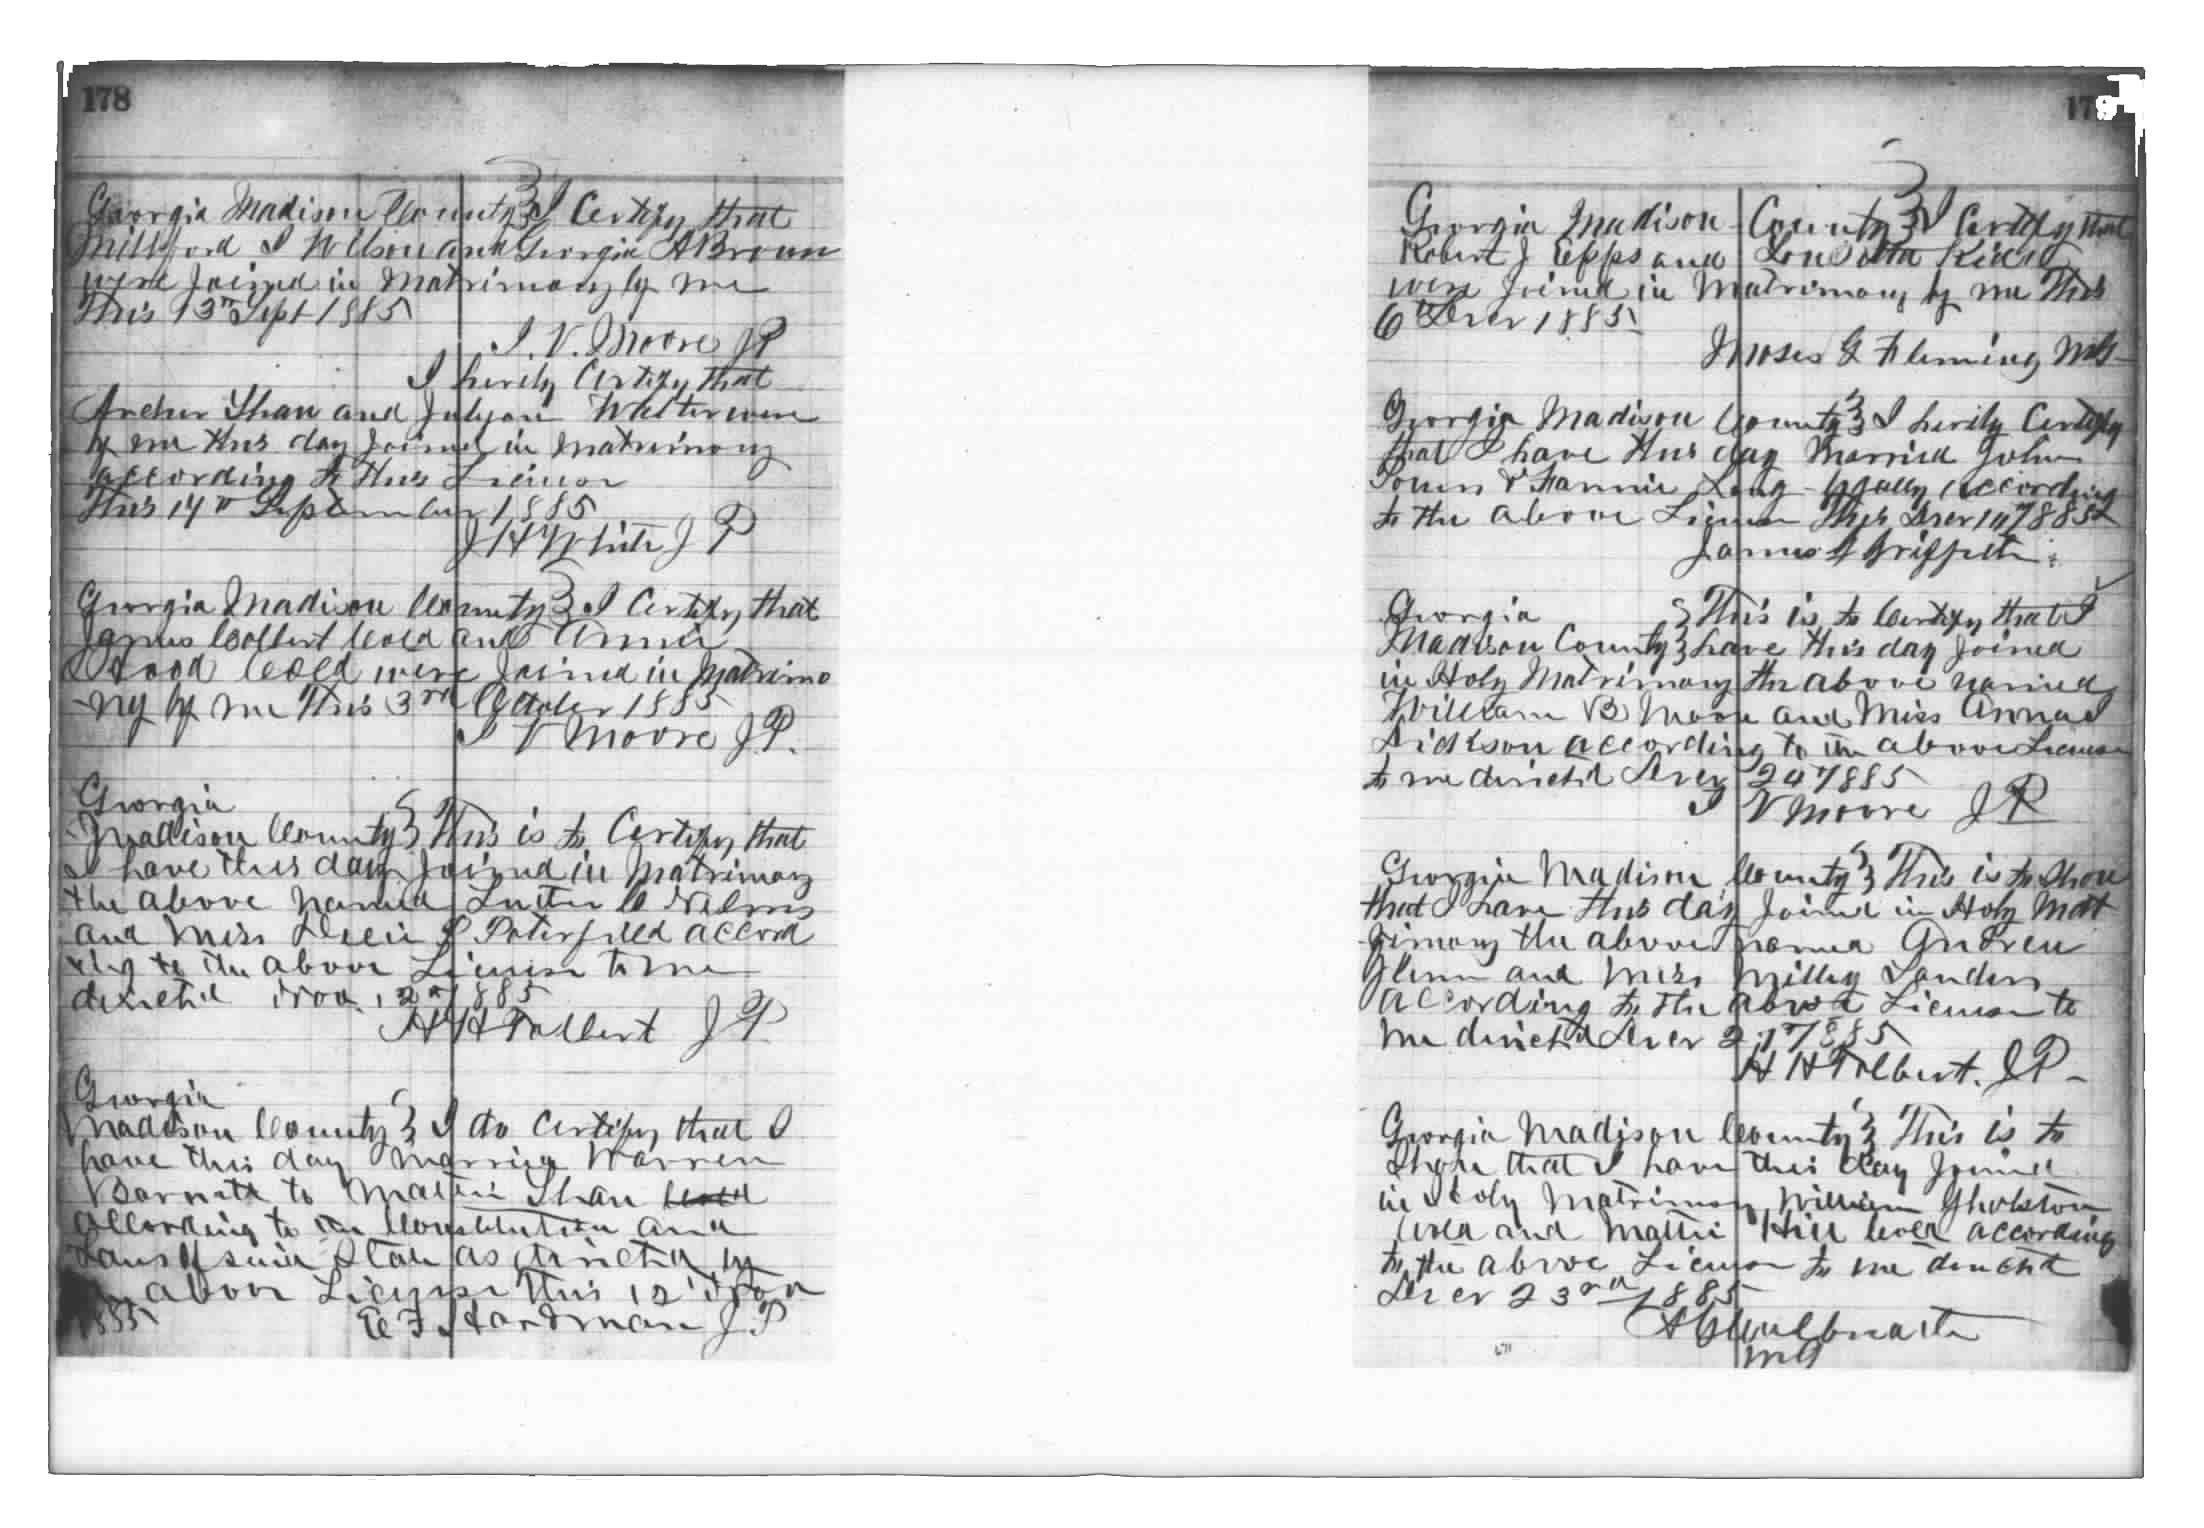 178
Georgia Madison County I Certify that
Millford I Wilson and Georgia A Brown
were Joined in Matrimony by me
This 13th Sept 1885
I. V. Moore JP
I herily Certify that
Archer Shaw and Julyan
by me this day Joined in Matrimony
according to this License
This 14th September 1885
J H White J P
Georgia Madison County I Certify that
James Colbert Cold and Annie
Hood Cold were Joined in Matrimo
-ny by me This 3rd October 1885
I V Moore J.P.
Georgia
Madison County This is to Certify that
I have this day Joined in Matrimony
the above named Luther C Nelms
and Miss P Poterfield accord
ing to the above License to me
directed Nov. 12th 1885
H H Tolbert J P
Georgia
Madison County I do Certify that I
have this day Married Warren
to Mattie Shaw
according to the Constitution and
Laws of said State as directed by
above License this 12 Nov
1885
E F Hardman J P
179
Georgia Madison County I Certify that
Robert J Epps and Kidd
were Joined in Matrimony by me This
6th Decr 1885
Moses G Fleming MG
Georgia Madison County I herily Certify
that I have this day Married John
& Fannie Long legally according
to the above License This Decr 1885
James Griffeth
Georgia This is to Certify that I
Madison County have this day Joined
in Holy Matrimony the above named
William B Moore and Miss Anna
Dickson according to the above License
to me directed Decr 20th 1885
I V Moore JP
Georgia Madison County This is to Show
that I have this day Joined in Holy Mat
rimony the above named Andrew
Glenn and Miss Milley Landers
according to the above License to
me directed Decr 1885
H H Tolbert. JP-
Georgia Madison County This is to
Show that I have this day Joined
in Holy Matrimony William Gholston
Cold and Mattie Hill Cold according
to the above License to me directed
Decr 23rd 1885
MG